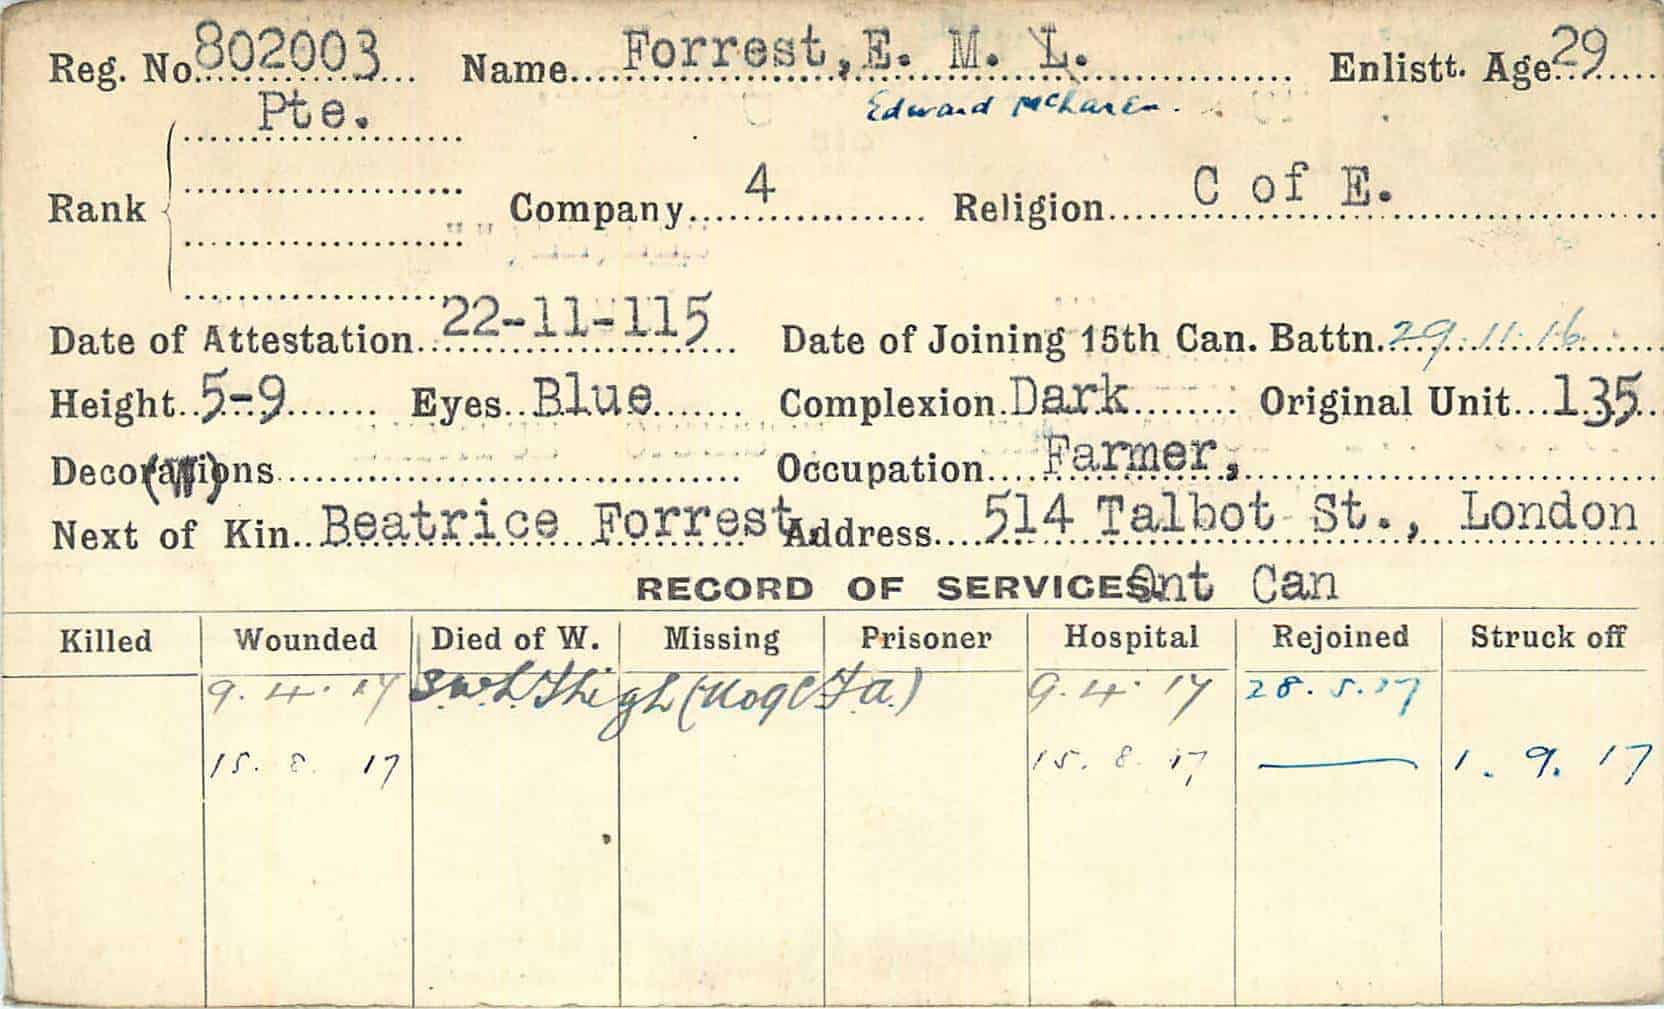 Reg. No. 802003 Name Forrest, E. M. L. Enlistt. Age 29
Edward McLaren.
Pte.
Rank Company 4 Religion C of E.
Date of Attestation 22-11-115 Date of Joining 15th Can. Battn. 29.11.16
Height 5-9 Eyes Blue Complexion Dark Original Unit 135
Decorations Occupation Farmer,
(W)
Next of Kin Beatrice Forrest, Address 514 Talbot St., London
RECORD OF SERVICES Ont Can
Killed Wounded Died of W. Missing Prisoner Hospital Rejoined Struck off
9.4.17 S.W. L. Thigh 9.4.17 28.5.17
15.8.17 15.8.17 — 1.9.17